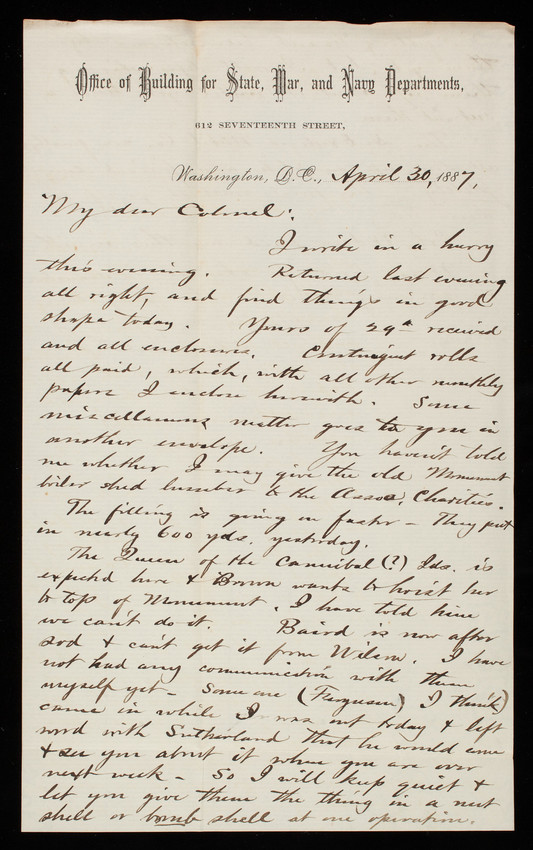 Office of Building for State, War, and Navy Departments,
612 SEVENTEENTH STREET,
Washington, D.C., April 30, 1887,
My dear Colonel:
I write in a hurry
this evening. Returned last evening
all right, and find things in good
shape today. Yours of 29th received
and all enclosures. Contingent rolls
all paid, which, with all other monthly
papers I enclose herewith. Some
miscellaneous matter goes to you in
another envelope. You haven't told
me whether I may give the old Monument
boiler shed lumber to the Assoc. Charities.
The filling is going on faster – They put
in nearly 600 yds. yesterday.
The Queen of the Cannibal (?) Ids. is
expected here & Brown wants to hoist her
to top of Monument. I have told him
we can't do it. Baird is now after
sod & can't get it from Wilson. I have
not had any communication with them
myself yet – Some one (Ferguson, I think)
came in while I was out today & left
word with Sutherland that he would come
& see you about it when you are over
next week – So I will keep quiet &
let you give them the thing in a nut
shell or bomb shell at one operation.